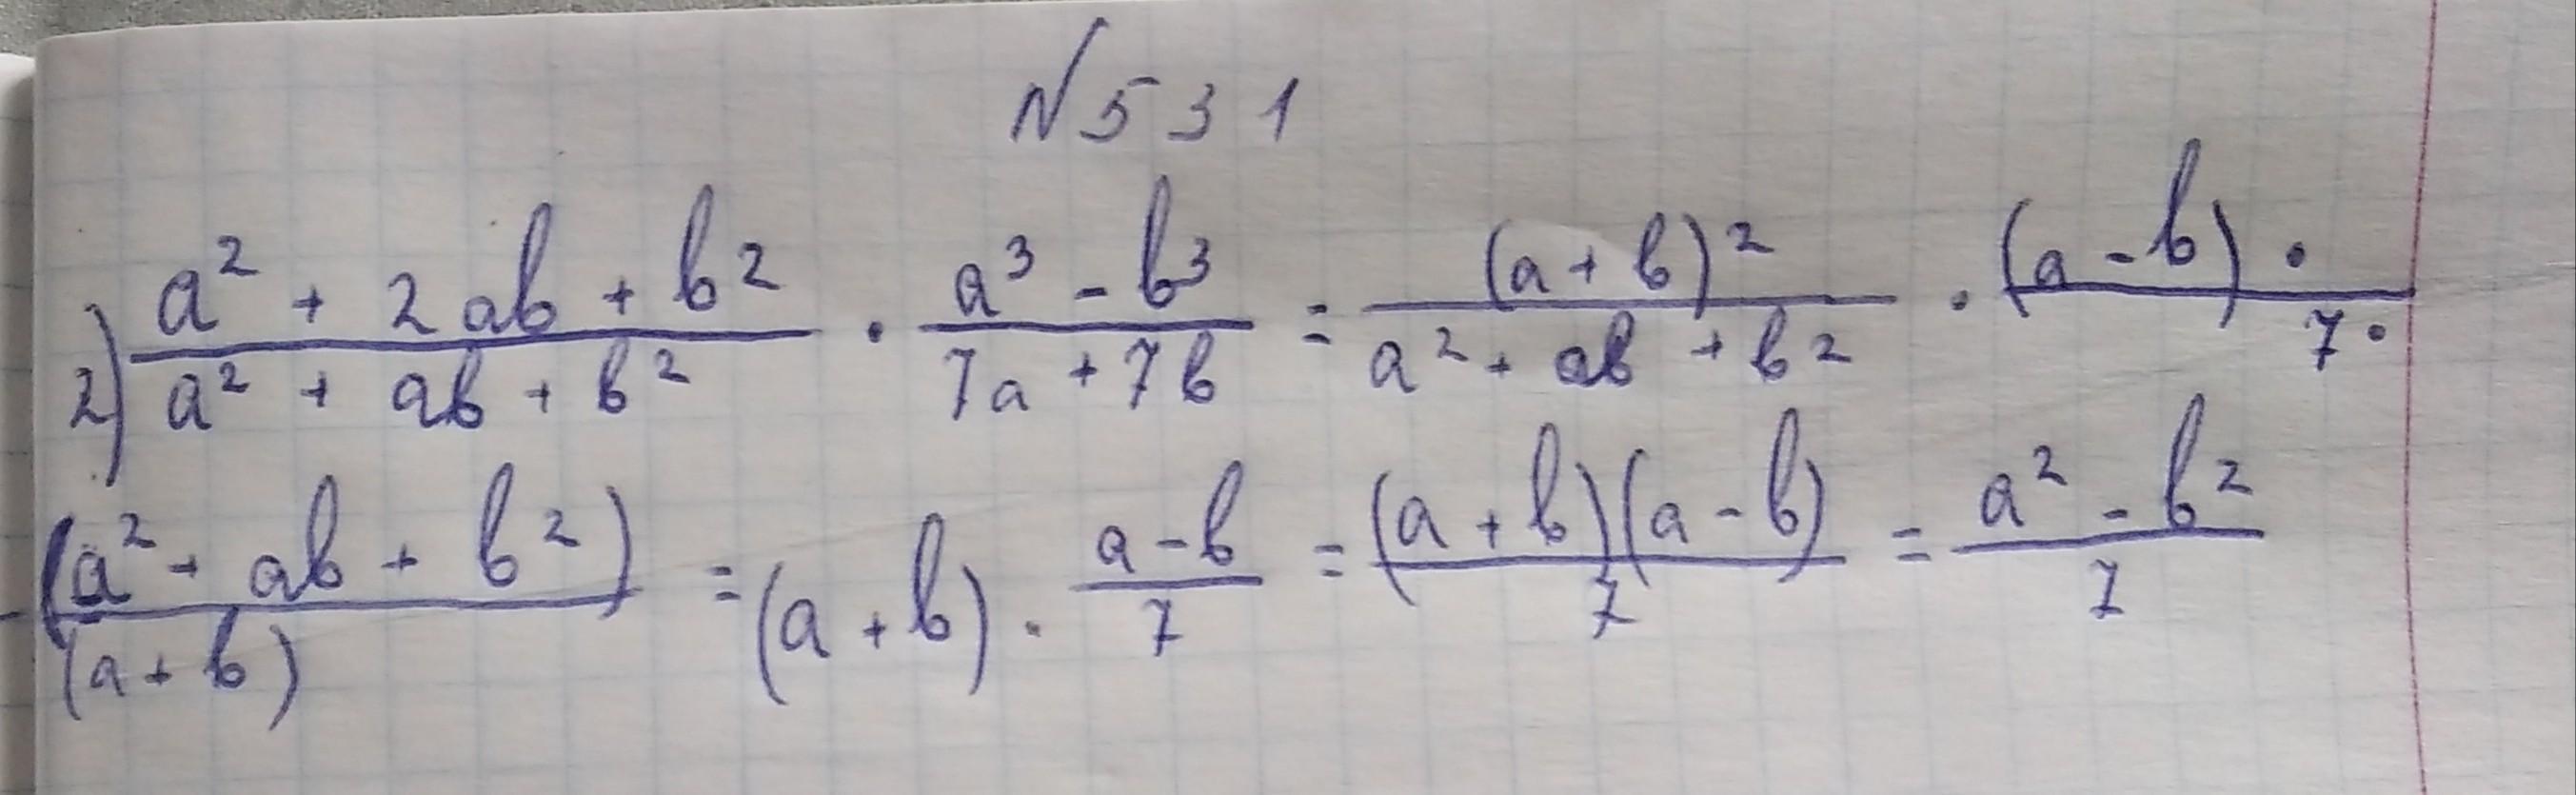 №531
2) \frac{a^2 + 2ab + b^2}{a^2 + ab + b^2} \cdot \frac{a^3 - b^3}{7a + 7b} = \frac{(a + b)^2}{a^2 + ab + b^2} \cdot \frac{(a - b) \cdot}{7 \cdot}
\frac{(a^2 + ab + b^2)}{(a + b)} = (a + b) \cdot \frac{a - b}{7} = \frac{(a + b)(a - b)}{7} = \frac{a^2 - b^2}{7}